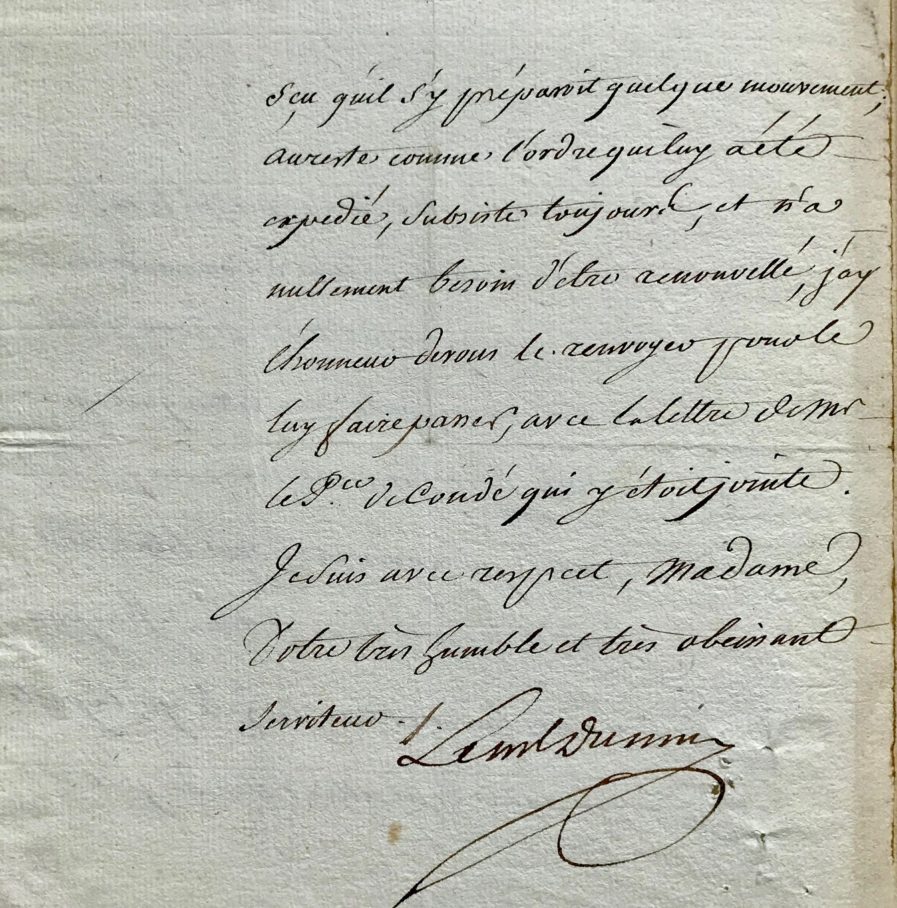 sçu qu'il s'y préparoit quelque mouvement;
au reste comme l'ordre qui luy a été
expedié, subsiste toujours, et n'a
nullement besoin d'etre renouvellé, j'ay
l'honneur de vous le renvoyer pour le
luy faire passer, avec la lettre de Mr
le P.ce de Condé qui y étoit jointe.
Je suis avec respect, Madame,
Votre très humble et très obeissant
serviteur.